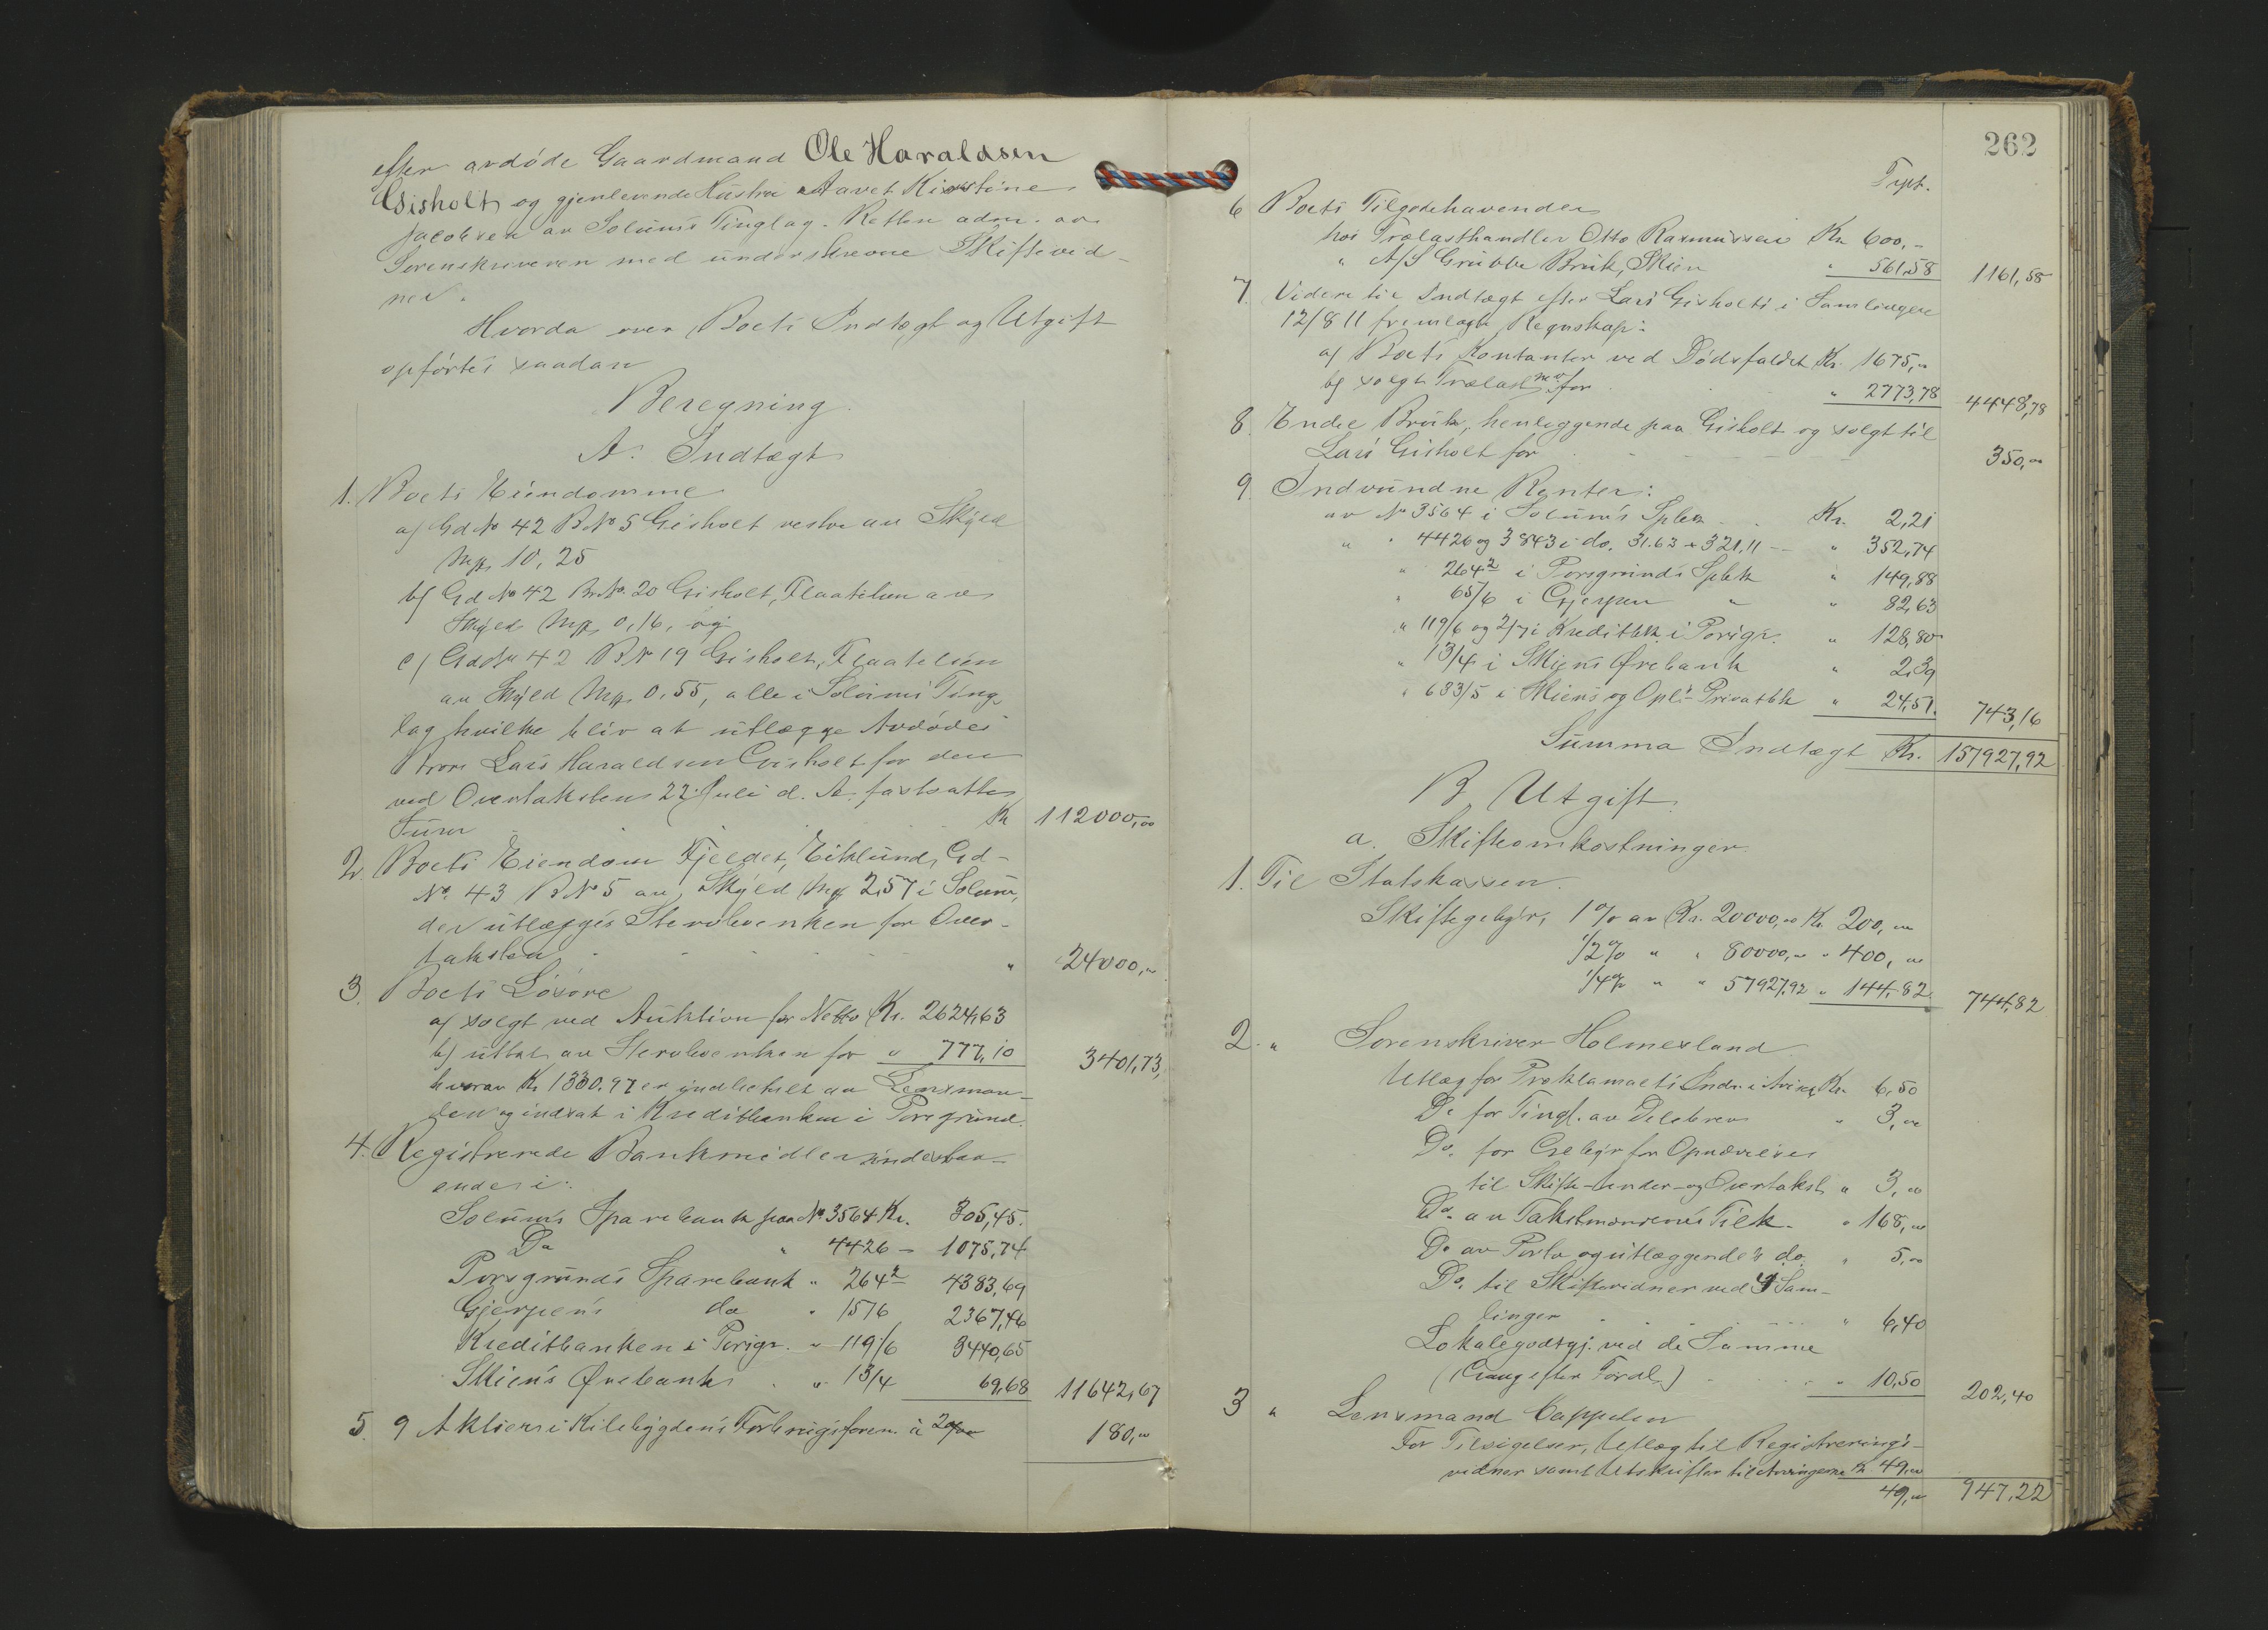 efter avdøde Gaardmand Ole Haraldsen
Gisholt og gjenlevende Hustru Maret Kirstine
Jacobsen av Solums Tinglag. Retten adm. av
Sorenskriveren med underskrevne Skiftevid-
ner.
Hvorda over Boets Indtægt og Utgift
opførtes saadan
Beregning.
A. Indtægt
1. Boets Eiendomme
a) Gd No 42 B No 5 Gisholt vestre av Skyld
Mk 10,25
b) Gd No 42 Br No 20 Gisholt, Flaatelien av
Skyld Mk 0,16, og
c) Gd No 42 B N 19 Gisholt, Flaatelien
av Skyld Mk 0,55, alle i Solums Ting-
lag hvilke bliv at utlægge Avdødes
Bror Lars Haraldsen Gisholt for den
ved Overtaksten 22 Juli d. A. fastsatte
Sum Kr 112000,00
2. Boets Eiendom Fjeldet, Eiklund, Gd-
No 43 B No 5 av Skyld Mk 2,57 i Solum,
der utlægges Stervboenken for Over-
taksten " 24000,00
3. Boets Løsøre
a) solgt ved Auktion for Netto Kr. 2624,63
b) uttat av Stervboenken for " 777,10 3401,73,
hvorav Kr 1330.97 er indbetalt av Lensman-
den og indsat i Kreditbanken i Porsgrund.
4. Registrerede Bankmidler indestaa-
ender i:
Solums Sparebank paa No 3564 Kr. 305,45.
Do " 4426 – 1075,74
Porsgrunds Sparebank " 264² 4383,69
Gjerpens do " 1516 2367,46
Kreditbanken i Porsgr. " 119/6 3440,65
Skiens Ørebank " 13/4 69,68 11642,67
5. 9 Aktier i Kilebygdens Forbrugsforen. à 20,00 180,00
262
Trpt.
6 Boets Tilgodehavender
hos Trælasthandler Otto Rasmussen Kr 600,-
" A/S Grubbe Bruk, Skien " 561,58 1161,58
7. Videre til Indtægt efter Lars Gisholts i Samlingen
12/8 11 fremlagte Regnskap:
a) Boets Kontanter ved Dødsfaldet Kr. 1675,00
b) solgt Trælast m.v. for " 2773,78 4448,78
8. Endel Bruk, henliggende paa Gisholt og solgt til
Lars Gisholt for 350,00
9. Indvundne Renter:
av No 3564 i Solums Spbk Kr. 2,21
" " 4426 og 3843 i do. 31.63 + 321,11 – " 352,74
" 264² i Porsgrunds Spbk " 149,88
" 65/6 i Gjerpen " " 82,63
" 119/6 og 2/7 i Kreditbk. i Porsgr. " 128,80
" 13/4 i Skiens Ørebank " 2,39
" 683/5 i Skiens og Opl's Privatbk " 24,51. 743,16
Summa Indtægt Kr. 157927,92
B. Utgift.
a. Skifteomkostninger
1. Til Statskassen.
Skiftegebyr, 1 % av Kr. 20000,00 Kr. 200,00
1/2 % " " 80000,00 " 400,00
1/4 % " " 57927,92 " 144,82 744,82
2. " Sorenskriver Holmesland
Utlæg for Proklamaets Indr. i Aviser Kr. 6,50
Do for Tingl. av Delebrev " 3,00
Do. for Gebyr for Opnævnelse
til Skifte- Under- og Overtakst " 3,00
Do. av Takstmændenes Tilk. " 168,00
Do av Porto og utlæggende do. " 5,00
Do. til Skiftevidner ved 4 Sam-
linger " 6,40
Lokalegodtgj. ved de Samme
(Gang efter Fordl.) " 10,50 202,40
3 " Lensmand Cappelen
For Tilsigelser, Utlæg til Registrerings-
vidner samt Utskrifter til Arvingerne Kr 49,00
49,00 947,22